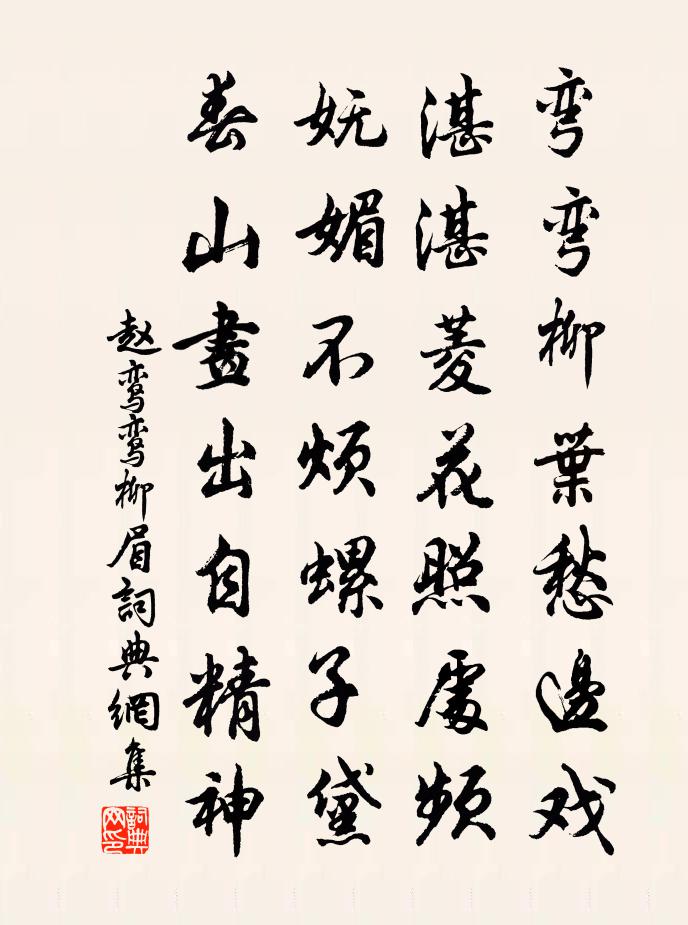 弯弯柳葉愁邊戏
湛湛菱花照處頻
妩媚不烦螺子黛
春山畫出自精神
赵鸾鸾柳眉詞典網集
詞典网印